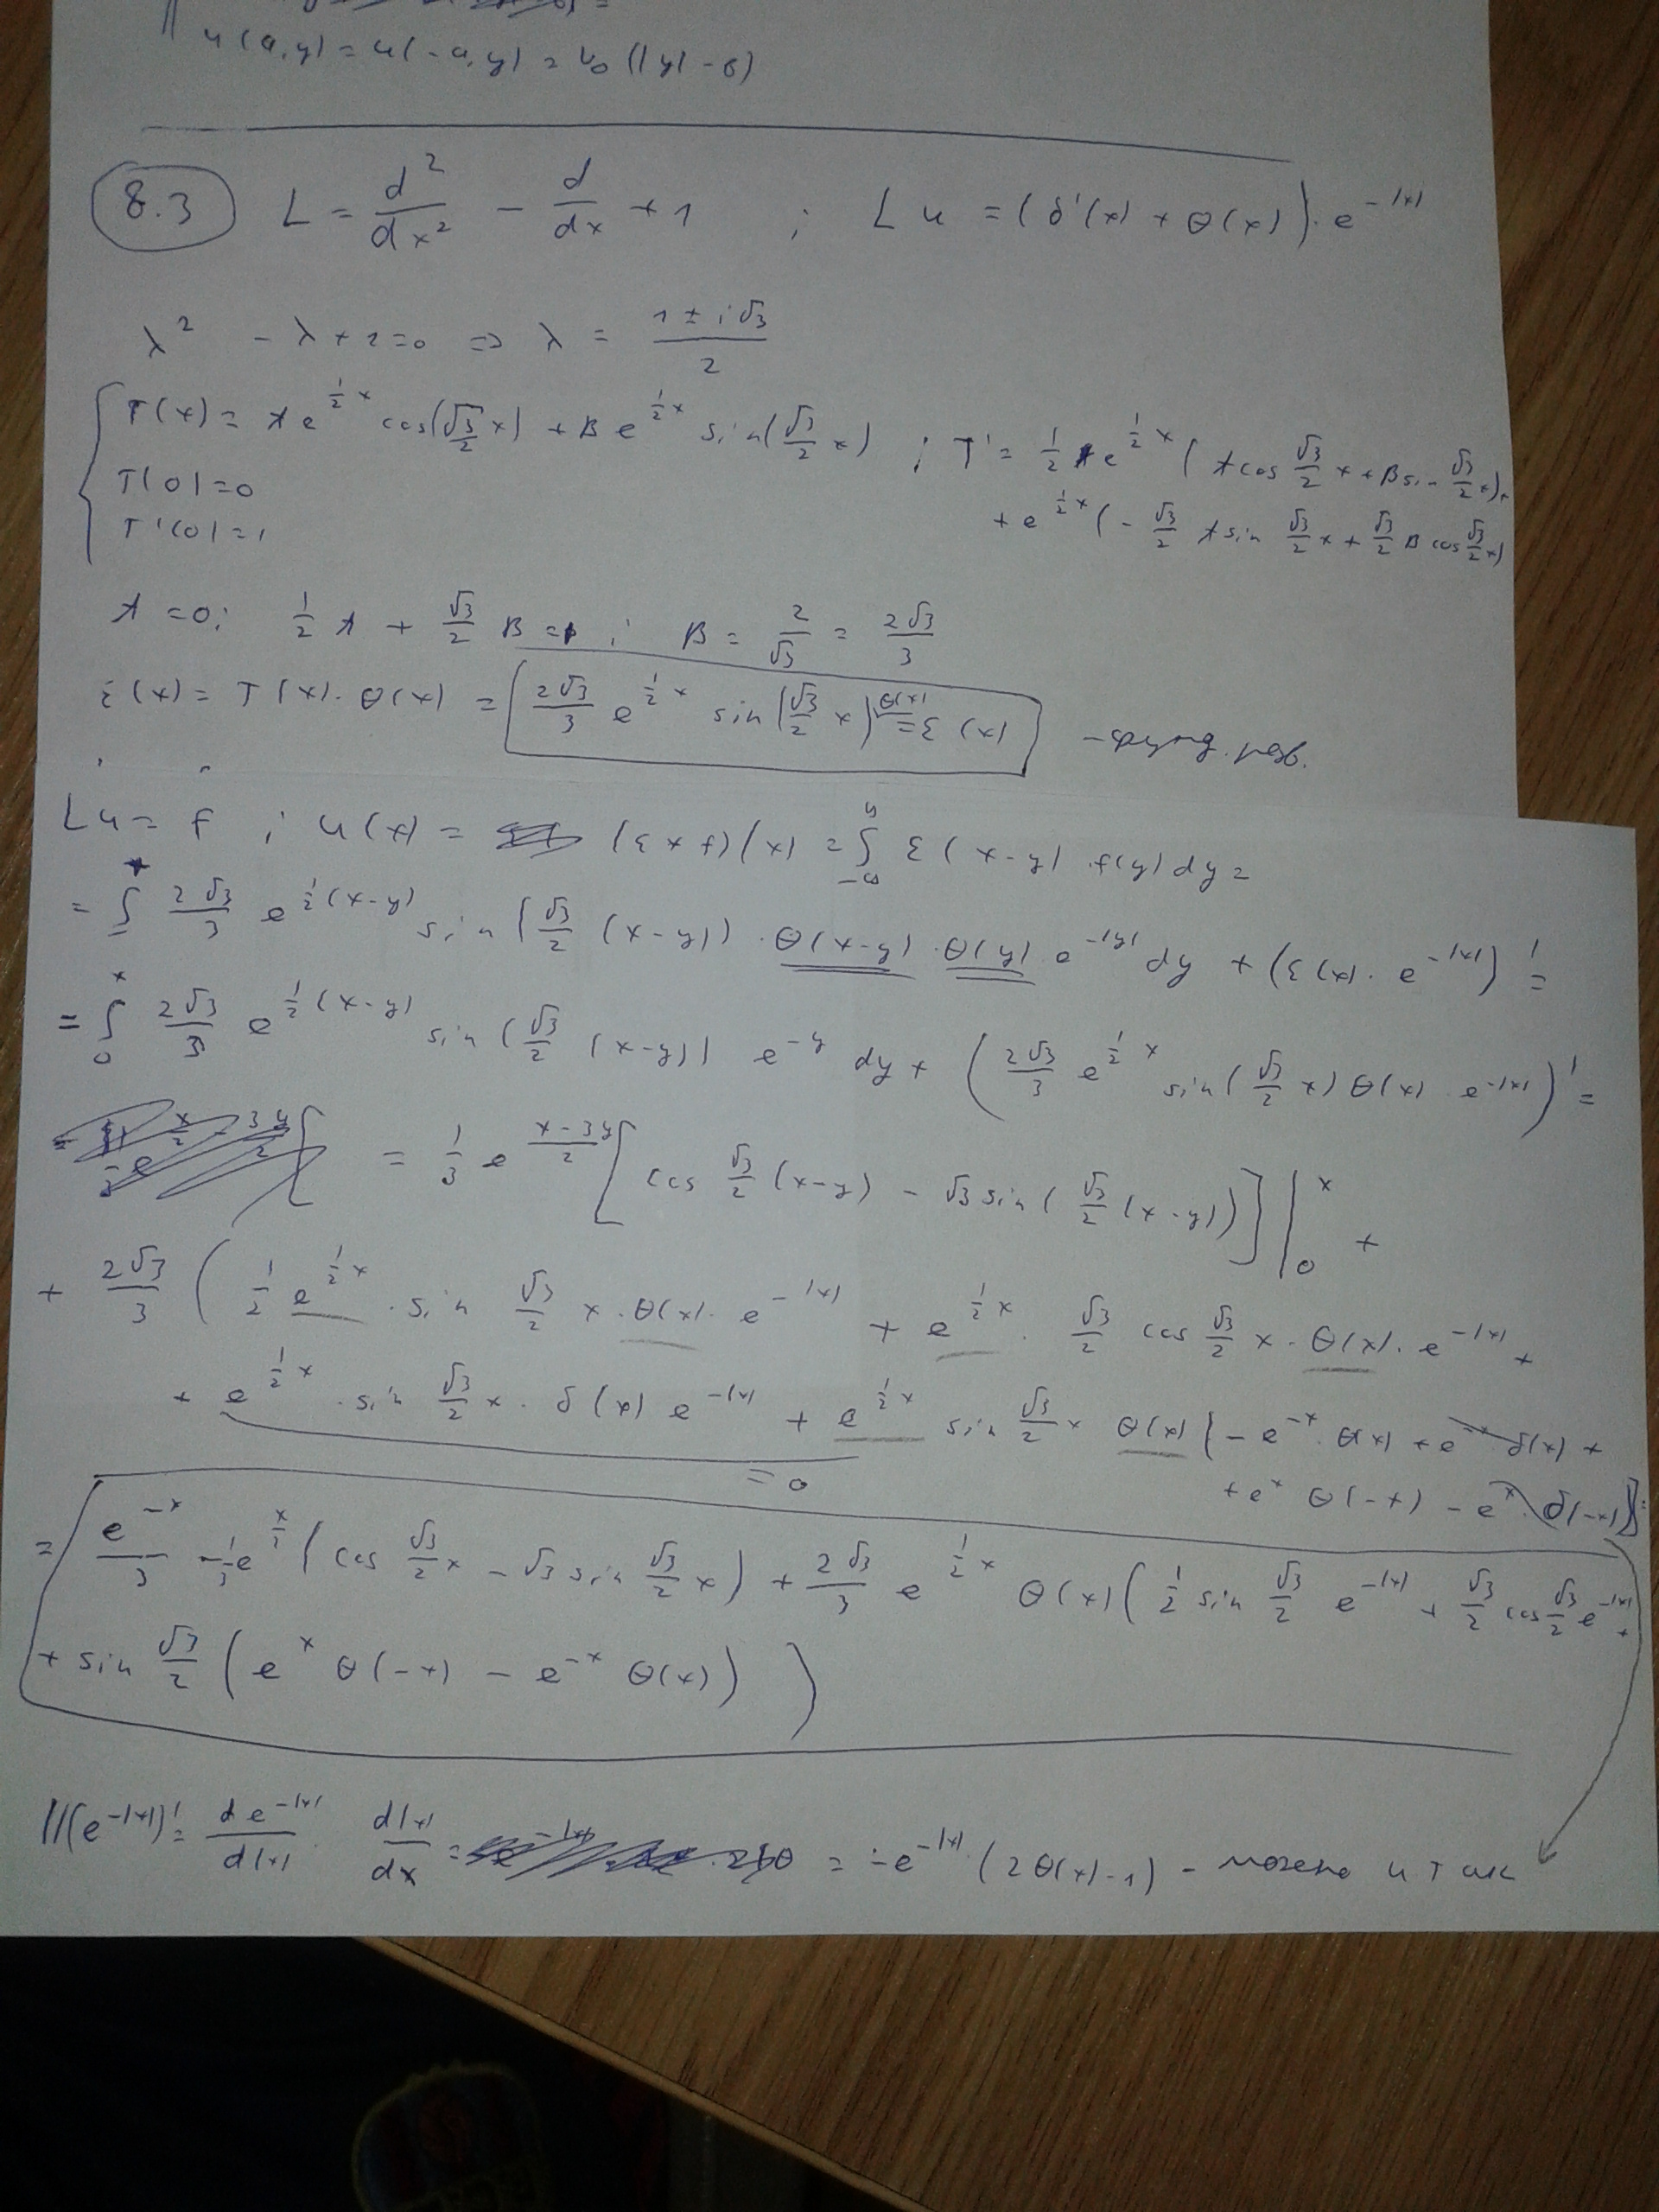 u(a,y) = u(-a,y) = v₀(|y| - b)
8.3 L = d²/dx² - d/dx + 1 ; Lu = (δ'(x) + θ(x))·e^{-|x|}
λ² - λ + 1 = 0 => λ = (1 ± i√3)/2
T(x) = A e^{½x} cos(√3/2 x) + B e^{½x} sin(√3/2 x) ; T' = ½ e^{½x} (A cos √3/2 x + B sin √3/2 x) +
T(0) = 0
+ e^{½x} (- √3/2 A sin √3/2 x + √3/2 B cos √3/2 x)
T'(0) = 1
A = 0; ½ A + √3/2 B = 1 ; B = 2/√3 = 2√3/3
ε(x) = T(x)·θ(x) = 2√3/3 e^{½x} sin(√3/2 x) θ(x) = ε(x) - фунд. реш.
Lu = f ; u(x) = (ε * f)(x) = ∫_{-∞}^{y} ε(x-y)·f(y)dy =
= ∫ 2√3/3 e^{½(x-y)} sin(√3/2 (x-y))·θ(x-y)·θ(y) e^{-|y|} dy + (ε(x)·e^{-|x|})' =
= ∫_0^x 2√3/3 e^{½(x-y)} sin(√3/2 (x-y)) e^{-y} dy + (2√3/3 e^{½x} sin(√3/2 x) θ(x) e^{-|x|})' =
= 1/3 e^{(x-3y)/2} [cos √3/2 (x-y) - √3 sin(√3/2 (x-y))] |_0^x +
+ 2√3/3 (½ e^{½x}·sin √3/2 x·θ(x)·e^{-|x|} + e^{½x}·√3/2 cos √3/2 x·θ(x)·e^{-|x|} +
+ e^{½x}·sin √3/2 x·δ(x) e^{-|x|} + e^{½x} sin √3/2 x θ(x) (- e^{-x}·θ(x) + e^{-x} δ(x) +
= 0
+ e^x θ(-x) - e^x·δ(-x)) =
= e^{-x}/3 - 1/3 e^{x/2} (cos √3/2 x - √3 sin √3/2 x) + 2√3/3 e^{½x} θ(x) (½ sin √3/2 e^{-|x|} + √3/2 cos √3/2 e^{-|x|} +
+ sin √3/2 (e^x θ(-x) - e^{-x} θ(x)))
//(e^{-|x|})' = de^{-|x|}/d|x| · d|x|/dx = = -e^{-|x|}·(2θ(x)-1) - можно и так